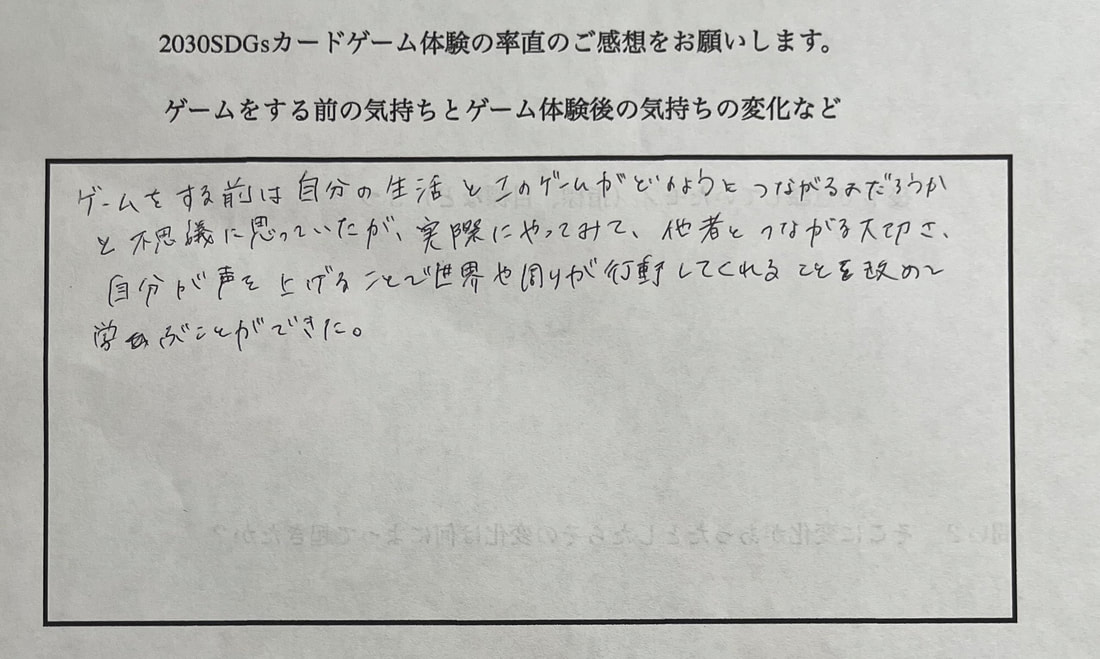 2030SDGsカードゲーム体験の率直のご感想をお願いします。
ゲームをする前の気持ちとゲーム体験後の気持ちの変化など
ゲームをする前は自分の生活とこのゲームがどのようにつながるのだろうか
と不思議に思っていたが、実際にやってみて、他者とつながる大切さ、
自分が声を上げることで世界や周りが行動してくれることを改めて
学ぶことができた。
問い2 そこに変化があったとしたらその変化は何によって起きたか?